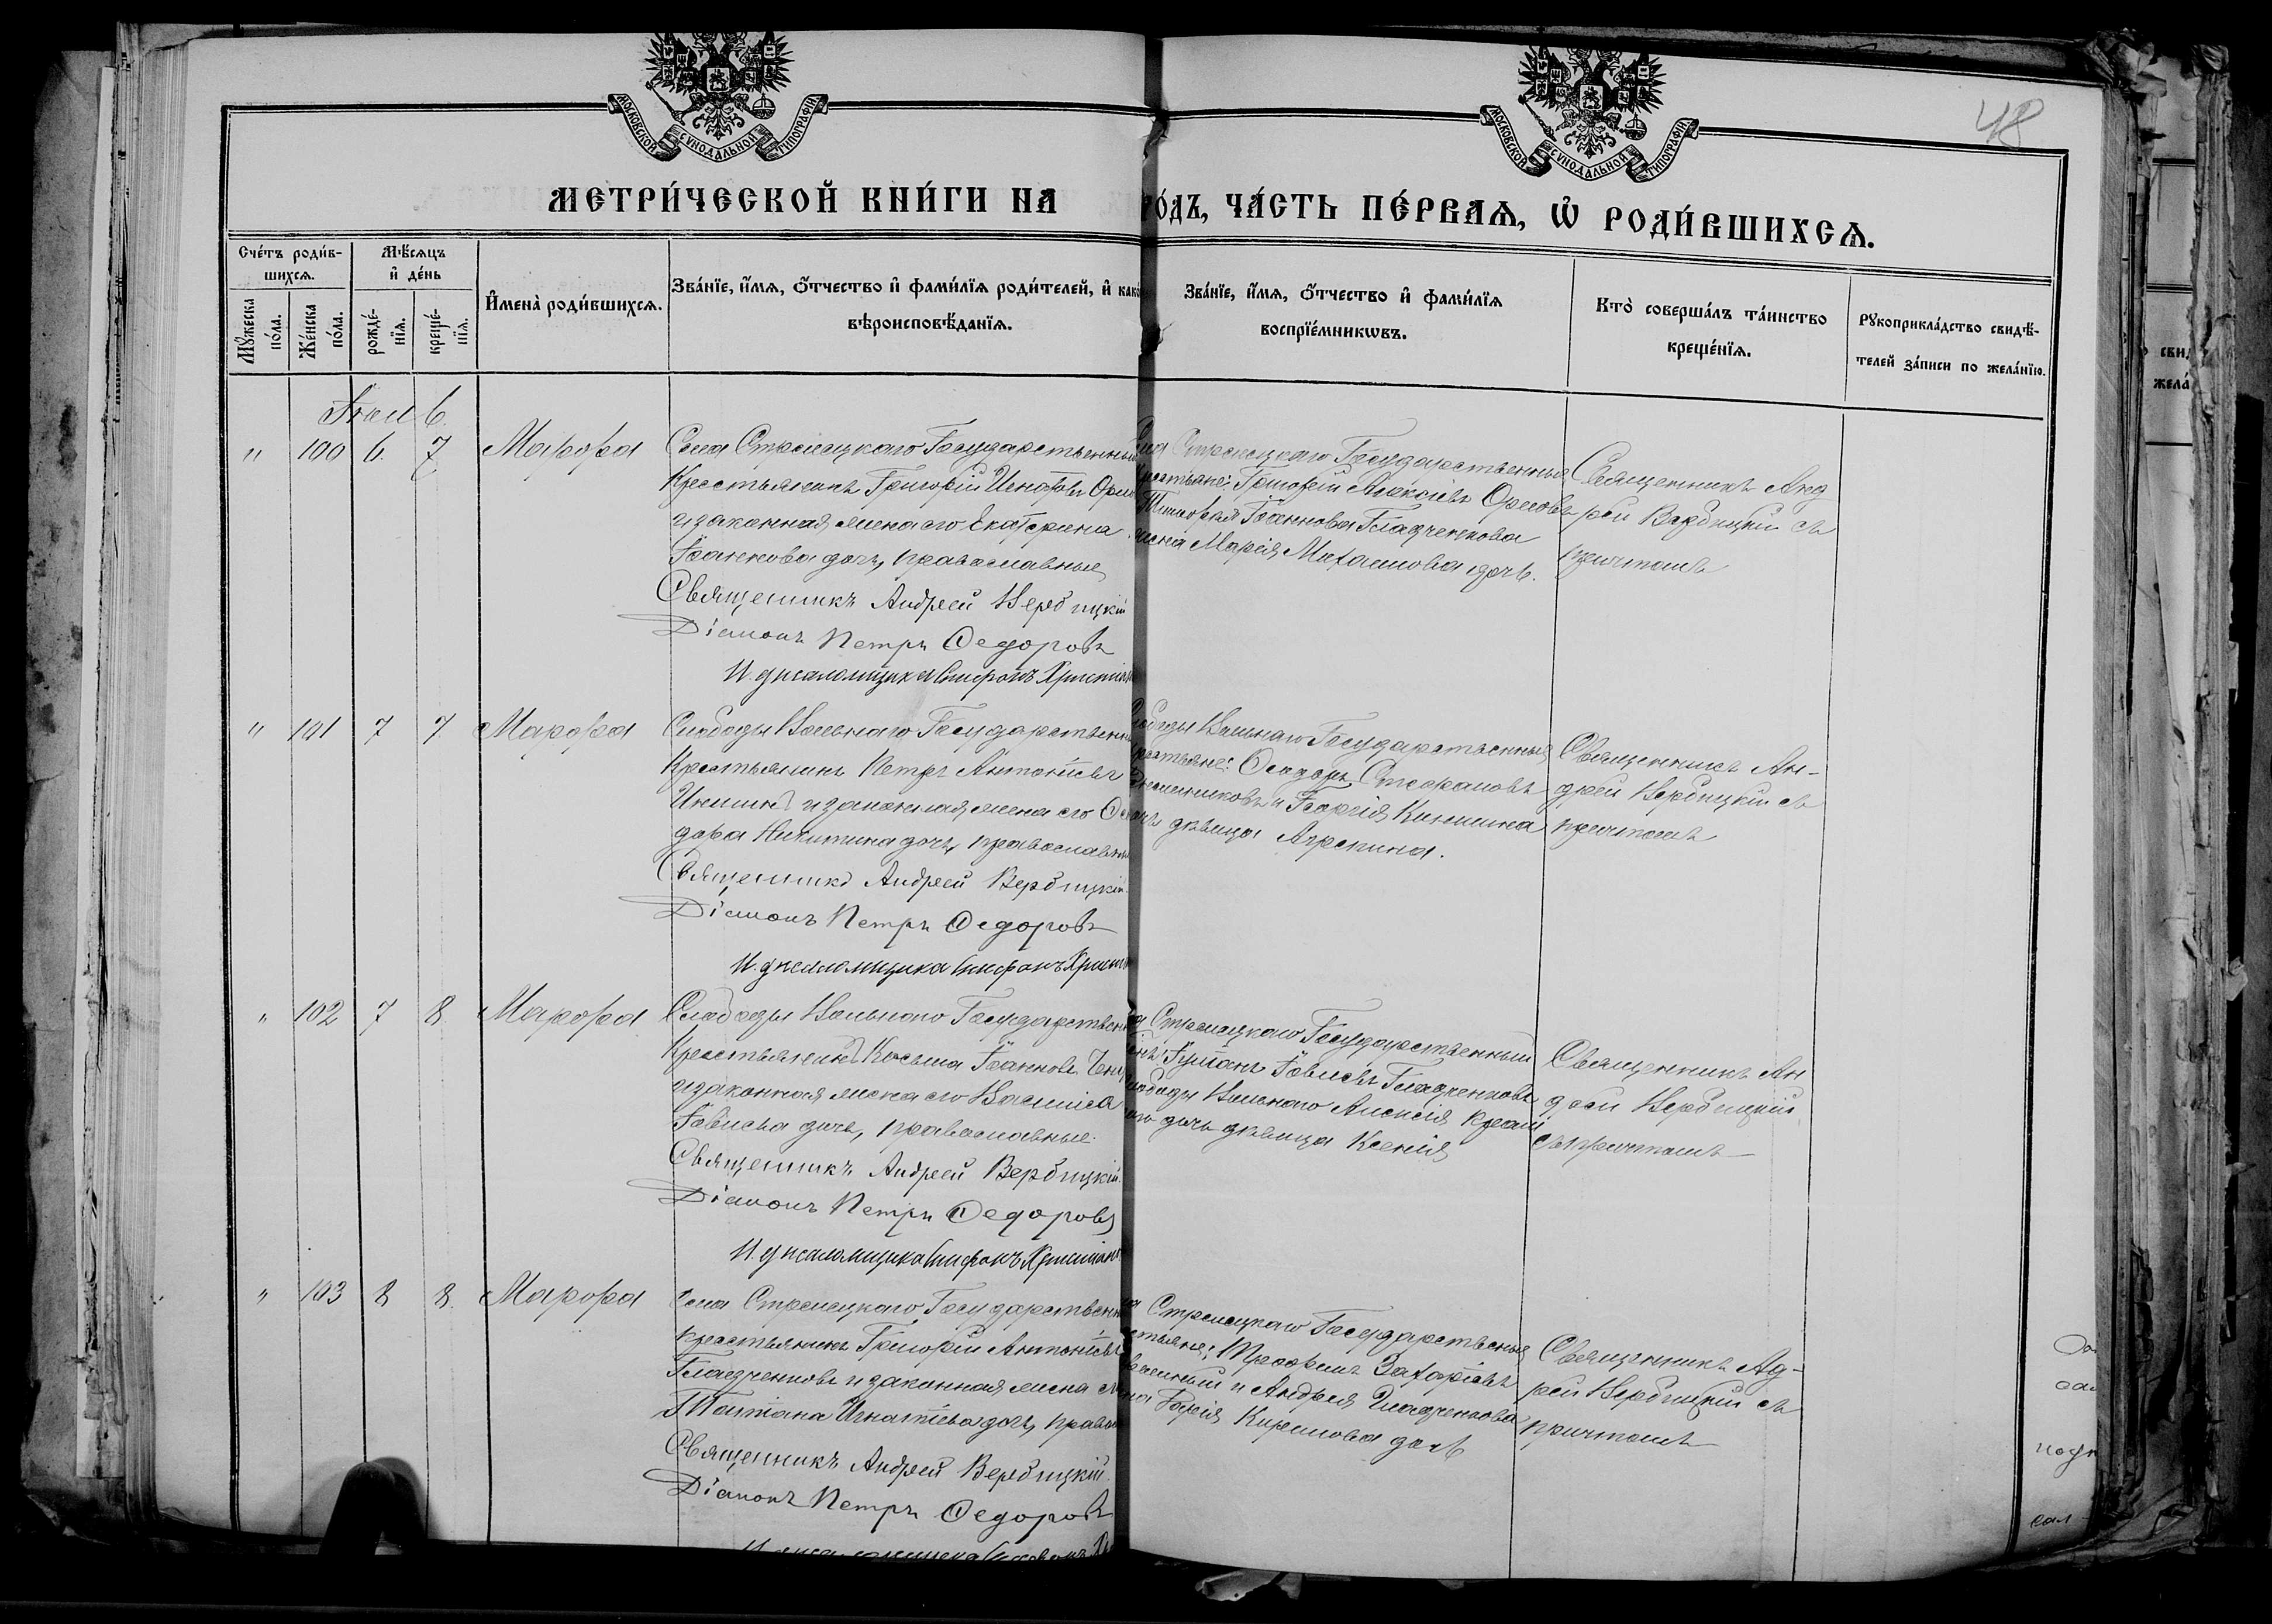 МОСКОВСКОЙ СУНОДАЛЬНОЙ ТИПОГРАФІИ
МОСКОВСКОЙ СУНОДАЛЬНОЙ ТИПОГРАФІИ
48
МЕТРИ́ЧЕСКОЙ КНИ́ГИ НА
РО́ДЪ, ЧА́СТЬ ПЕ́РВАѦ, Ѿ РОДИ́ВШИХСѦ.
Сче́тъ роди́в-
шихсѧ.
Мꙋ́жеска по́ла.
Же́нска по́ла.
Мѣ́сѧцъ
и҆ де́нь
рожде́-
нїѧ.
креще́-
нїѧ.
И҆мена̀ роди́вшихсѧ.
Зва́нїе, и҆́мѧ, ѻ҆́тчество и҆ фами́лїѧ роди́телей, и҆ како
вѣроисповѣ́данїѧ.
Зва́нїе, и҆́мѧ, ѻ҆́тчество и҆ фами́лїѧ
воспрїе́мникѡвъ.
Кто̀ соверша́лъ та́инство
креще́нїѧ.
Рꙋкоприкла́дство свидѣ́-
телей за́писи по жела́нїю.
Іюль
" 100 6 7 Марѳа
Села Стрелецкаго Государственный
Крестьянинъ Григорій Игнатовъ
и законная жена его Екатерина
Іоаннова дочь, православные
Священникъ Андрей Вербицкій
Діаконъ Петръ Федоровъ
И. д. псаломщика
Стрелецкаго Государственные
Крестьяне: Григорій Алексіевъ Орловъ
Іоаннова Гладченкова
жена Марія Михаилова дочь.
Священникъ Анд
рей Вербицкій съ
причтомъ
" 101 7 7 Марѳа
Слободы Вольнаго Государственный
Крестьянинъ Петръ Антоніевъ
и законная жена его
дора Никитина дочь, православные
Священникъ Андрей Вербицкій
Діаконъ Петръ Федоровъ
И. д. псаломщика
Слободы Вольнаго Государственные
Крестьяне: Стефановъ
и Георгія Киншина
дочь дѣвица Агрепина.
Священникъ Ан-
дрей Вербицкій съ
причтомъ
" 102 7 8 Марѳа
Слободы Вольнаго Государственный
Крестьянинъ Косьма Іоанновъ
и законная жена его Василиса
Іовлева дочь, православные.
Священникъ Андрей Вербицкій
Діаконъ Петръ Федоровъ
И. д. псаломщика
Стрелецкаго Государственный
Іовлевъ Гладченковъ
Слободы Вольнаго Алексія
дочь дѣвица Ксенія
Священникъ Ан
дрей Вербицкій
съ причтомъ
" 103 8 8 Марѳа
Села Стрелецкаго Государственный
крестьянинъ Григорій Антоніевъ
Гладченковъ и законная жена
Татіана Игнатіева дочь, право
Священникъ Андрей Вербицкій
Діаконъ Петръ Федоровъ
Стрелецкаго Государственные
Крестьяне: Трофимъ Захаріевъ
и Андрея Гладченкова
Кирилова дочь
Священникъ Ад-
рей Вербицкій съ
причтомъ